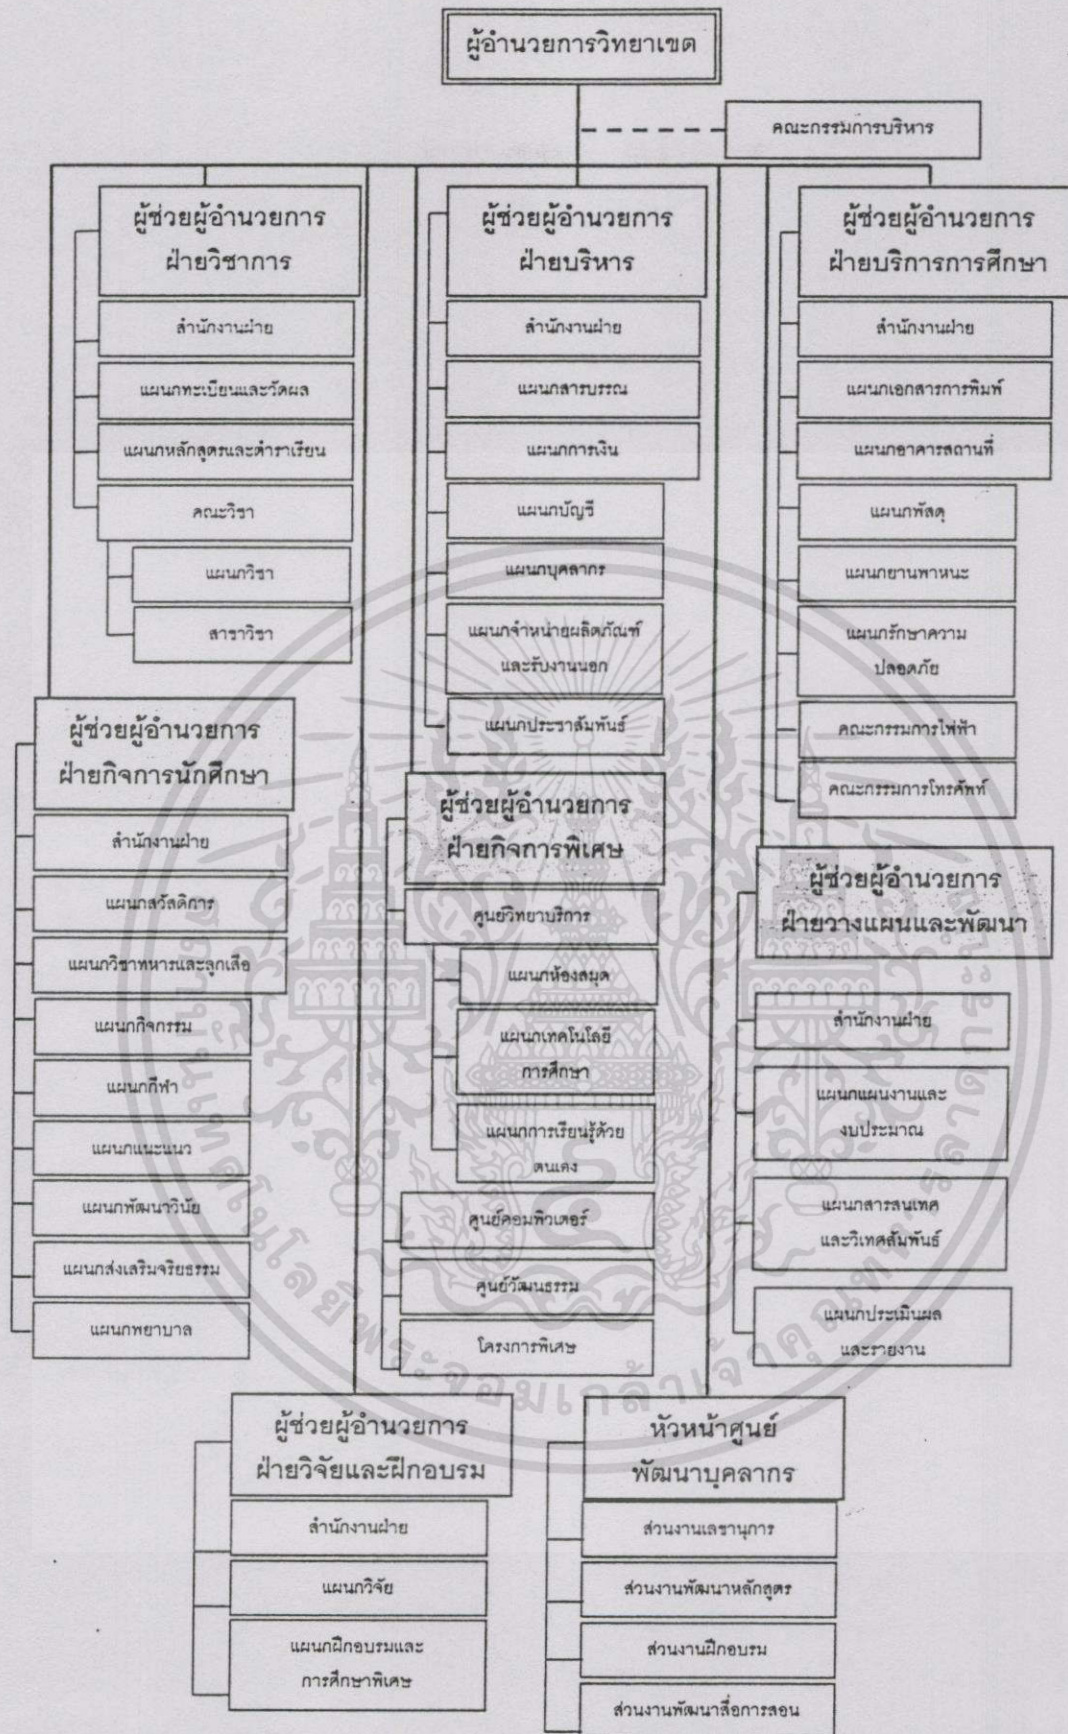 ผู้อำนวยการวิทยาเขต
คณะกรรมการบริหาร
ผู้ช่วยผู้อำนวยการ
ฝ่ายวิชาการ
สำนักงานฝ่าย
แผนกทะเบียนและวัดผล
แผนกหลักสูตรและตำราเรียน
คณะวิชา
แผนกวิชา
สาขาวิชา
ผู้ช่วยผู้อำนวยการ
ฝ่ายบริหาร
สำนักงานฝ่าย
แผนกสารบรรณ
แผนกการเงิน
แผนกบัญชี
แผนกบุคลากร
แผนกจำหน่ายผลิตภัณฑ์
และรับงานนอก
แผนกประชาสัมพันธ์
ผู้ช่วยผู้อำนวยการ
ฝ่ายบริการการศึกษา
สำนักงานฝ่าย
แผนกเอกสารการพิมพ์
แผนกอาคารสถานที่
แผนกพัสดุ
แผนกยานพาหนะ
แผนกรักษาความ
ปลอดภัย
คณะกรรมการไฟฟ้า
คณะกรรมการโทรศัพท์
ผู้ช่วยผู้อำนวยการ
ฝ่ายกิจการนักศึกษา
สำนักงานฝ่าย
แผนกสวัสดิการ
แผนกวิชาทหารและลูกเสือ
แผนกกิจกรรม
แผนกกีฬา
แผนกแนะแนว
แผนกพัฒนาวินัย
แผนกส่งเสริมจริยธรรม
แผนกพยาบาล
ผู้ช่วยผู้อำนวยการ
ฝ่ายกิจการพิเศษ
ศูนย์วิทยาบริการ
แผนกห้องสมุด
แผนกเทคโนโลยี
การศึกษา
แผนกการเรียนรู้ด้วย
ตนเอง
ศูนย์คอมพิวเตอร์
ศูนย์วัฒนธรรม
โครงการพิเศษ
ผู้ช่วยผู้อำนวยการ
ฝ่ายวางแผนและพัฒนา
สำนักงานฝ่าย
แผนกแผนงานและ
งบประมาณ
แผนกสารสนเทศ
และวิเทศสัมพันธ์
แผนกประเมินผล
และรายงาน
ผู้ช่วยผู้อำนวยการ
ฝ่ายวิจัยและฝึกอบรม
สำนักงานฝ่าย
แผนกวิจัย
แผนกฝึกอบรมและ
การศึกษาพิเศษ
หัวหน้าศูนย์
พัฒนาบุคลากร
ส่วนงานเลขานุการ
ส่วนงานพัฒนาหลักสูตร
ส่วนงานฝึกอบรม
ส่วนงานพัฒนาสื่อการสอน